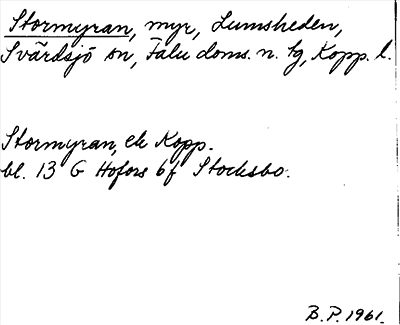 Stormyran, myr, Lumsheden,
Svärdsjö sn, Falu doms. n. tg, Kopp. l.
Stormyran, ek Kopp.
bl. 13 G Hofors 6f Stocksbo.
B.P. 1961.